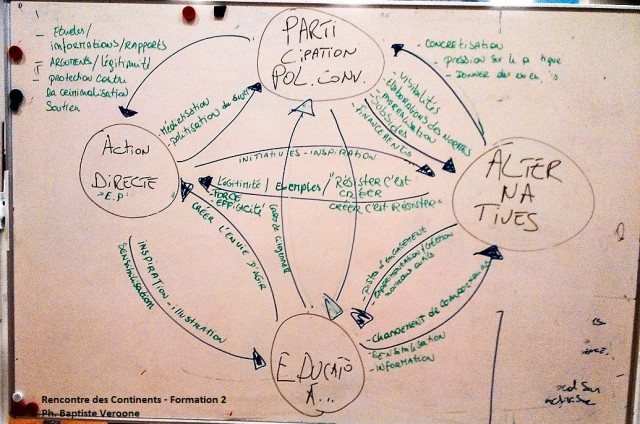 - Etudes/
informations/rapports
- Arguments/légitimité
- protection contre
la criminalisation
Soutien
PARTI
CIPATION
POL. CONV.
- CONCRETISATION
- pression sur le
- DONNER des
- VISIBILITÉS
- élaborations des NORMES
- NORMALISATION
- Subsides
- FINANCEMENTS
- Médiatisation
- politisation du sujet
ACTION
DIRECTE
"E.P"
INITIATIVES - INSPIRATION
ALTER
NA
TIVES
Légitimité / Exemples / "Résister c'est
CRÉER
- FORCE
- EFFICACITÉ
CRÉER C'EST RÉSISTER"
CRÉER L'ENVIE D'AGIR
INSPIRATION - ILLUSTRATION
Sensibilisation
D'ENGAGEMENT
- EXPÉRIMENTATION/CRÉATION
nouveaux outils
- CHANGEMENT DE
- SENSIBILISATION
- INFORMATION
EDUCATO
A...
Rencontre des Continents - Formation 2
Ph. Baptiste Veroone